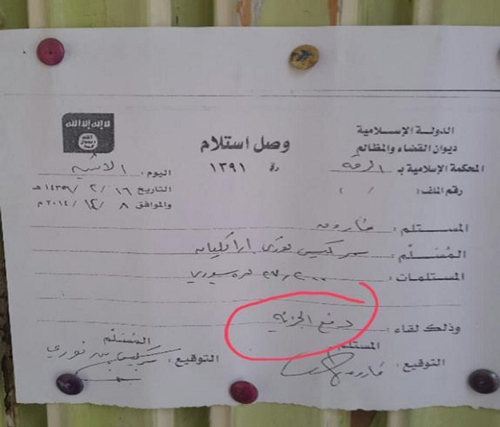 الدولة الإسلامية
ديوان القضاء والمظالم
المحكمة الإسلامية بـ الرقة
رقم الملف: / /
وصل استلام
رقم ١٣٩١
لا إله إلا الله
الله
رسول
محمد
اليوم: الاثنين
التاريخ ١٦ / ٢ / ١٤٣٦ هـ
والموافق ٨ / ١٢ / ٢٠١٤ م
المستلم: فاروق
المُسَلِّم: سركيس نوري اراكليان
المستلمات: سوري
وذلك لقاء: دفع الجزية
المستلم
التوقيع: فاروق
المُسَلِّم
التوقيع: سركيس نوري